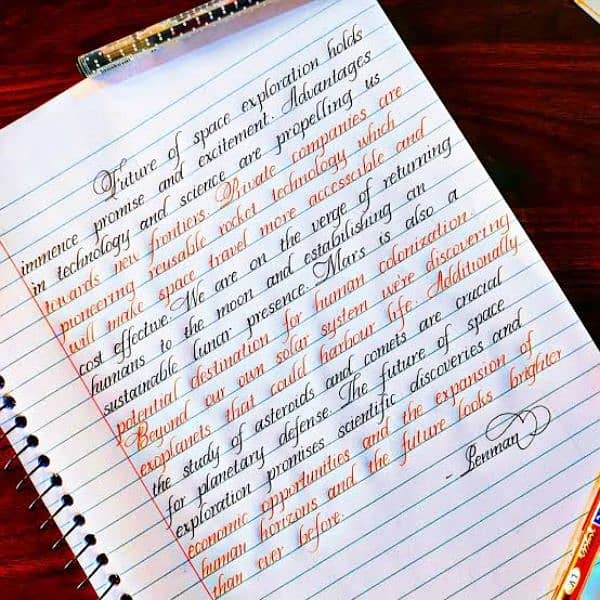 Future of space exploration holds
immence promise and excitement. Advantages
in technology and science are propelling us
towards new frontiers. Private companies are
pioneering reusable rocket technology which
will make space travel more accesscible and
cost effective. We are on the verge of returning
humans to the moon and estabilishing an
sustainable lunar presence. Mars is also a
potential destination for human colonization.
Beyond our own solar system we're discovering
exoplanets that could harbour life. Additionally
the study of asteroids and comets are crucial
for planetary defense. The future of space
exploration promises scientific discoveries and
economic opportunities and the expansion of
human horizons and the future looks brighter
than ever before.
- Penman